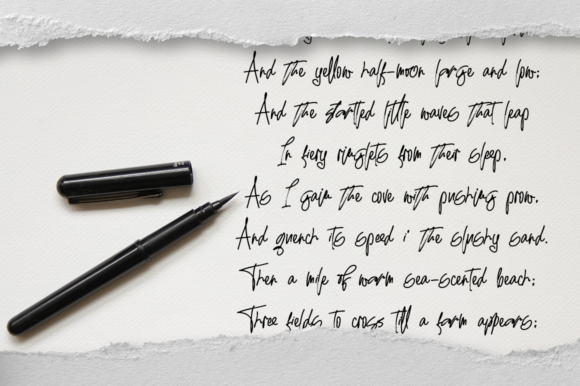 And the yellow half-moon large and low;
And the startled little waves that leap
In fiery ringlets from their sleep,
As I gain the cove with pushing prow,
And quench its speed i the slushy sand.
Then a mile of warm sea-scented beach;
Three fields to cross till a farm appears;